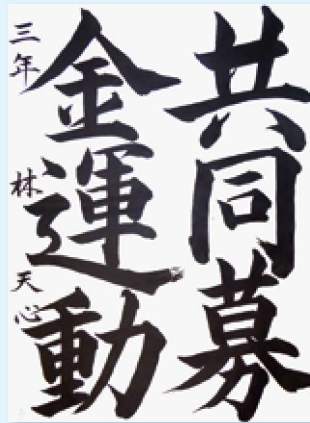 共同募
金運動
三年 林 天心